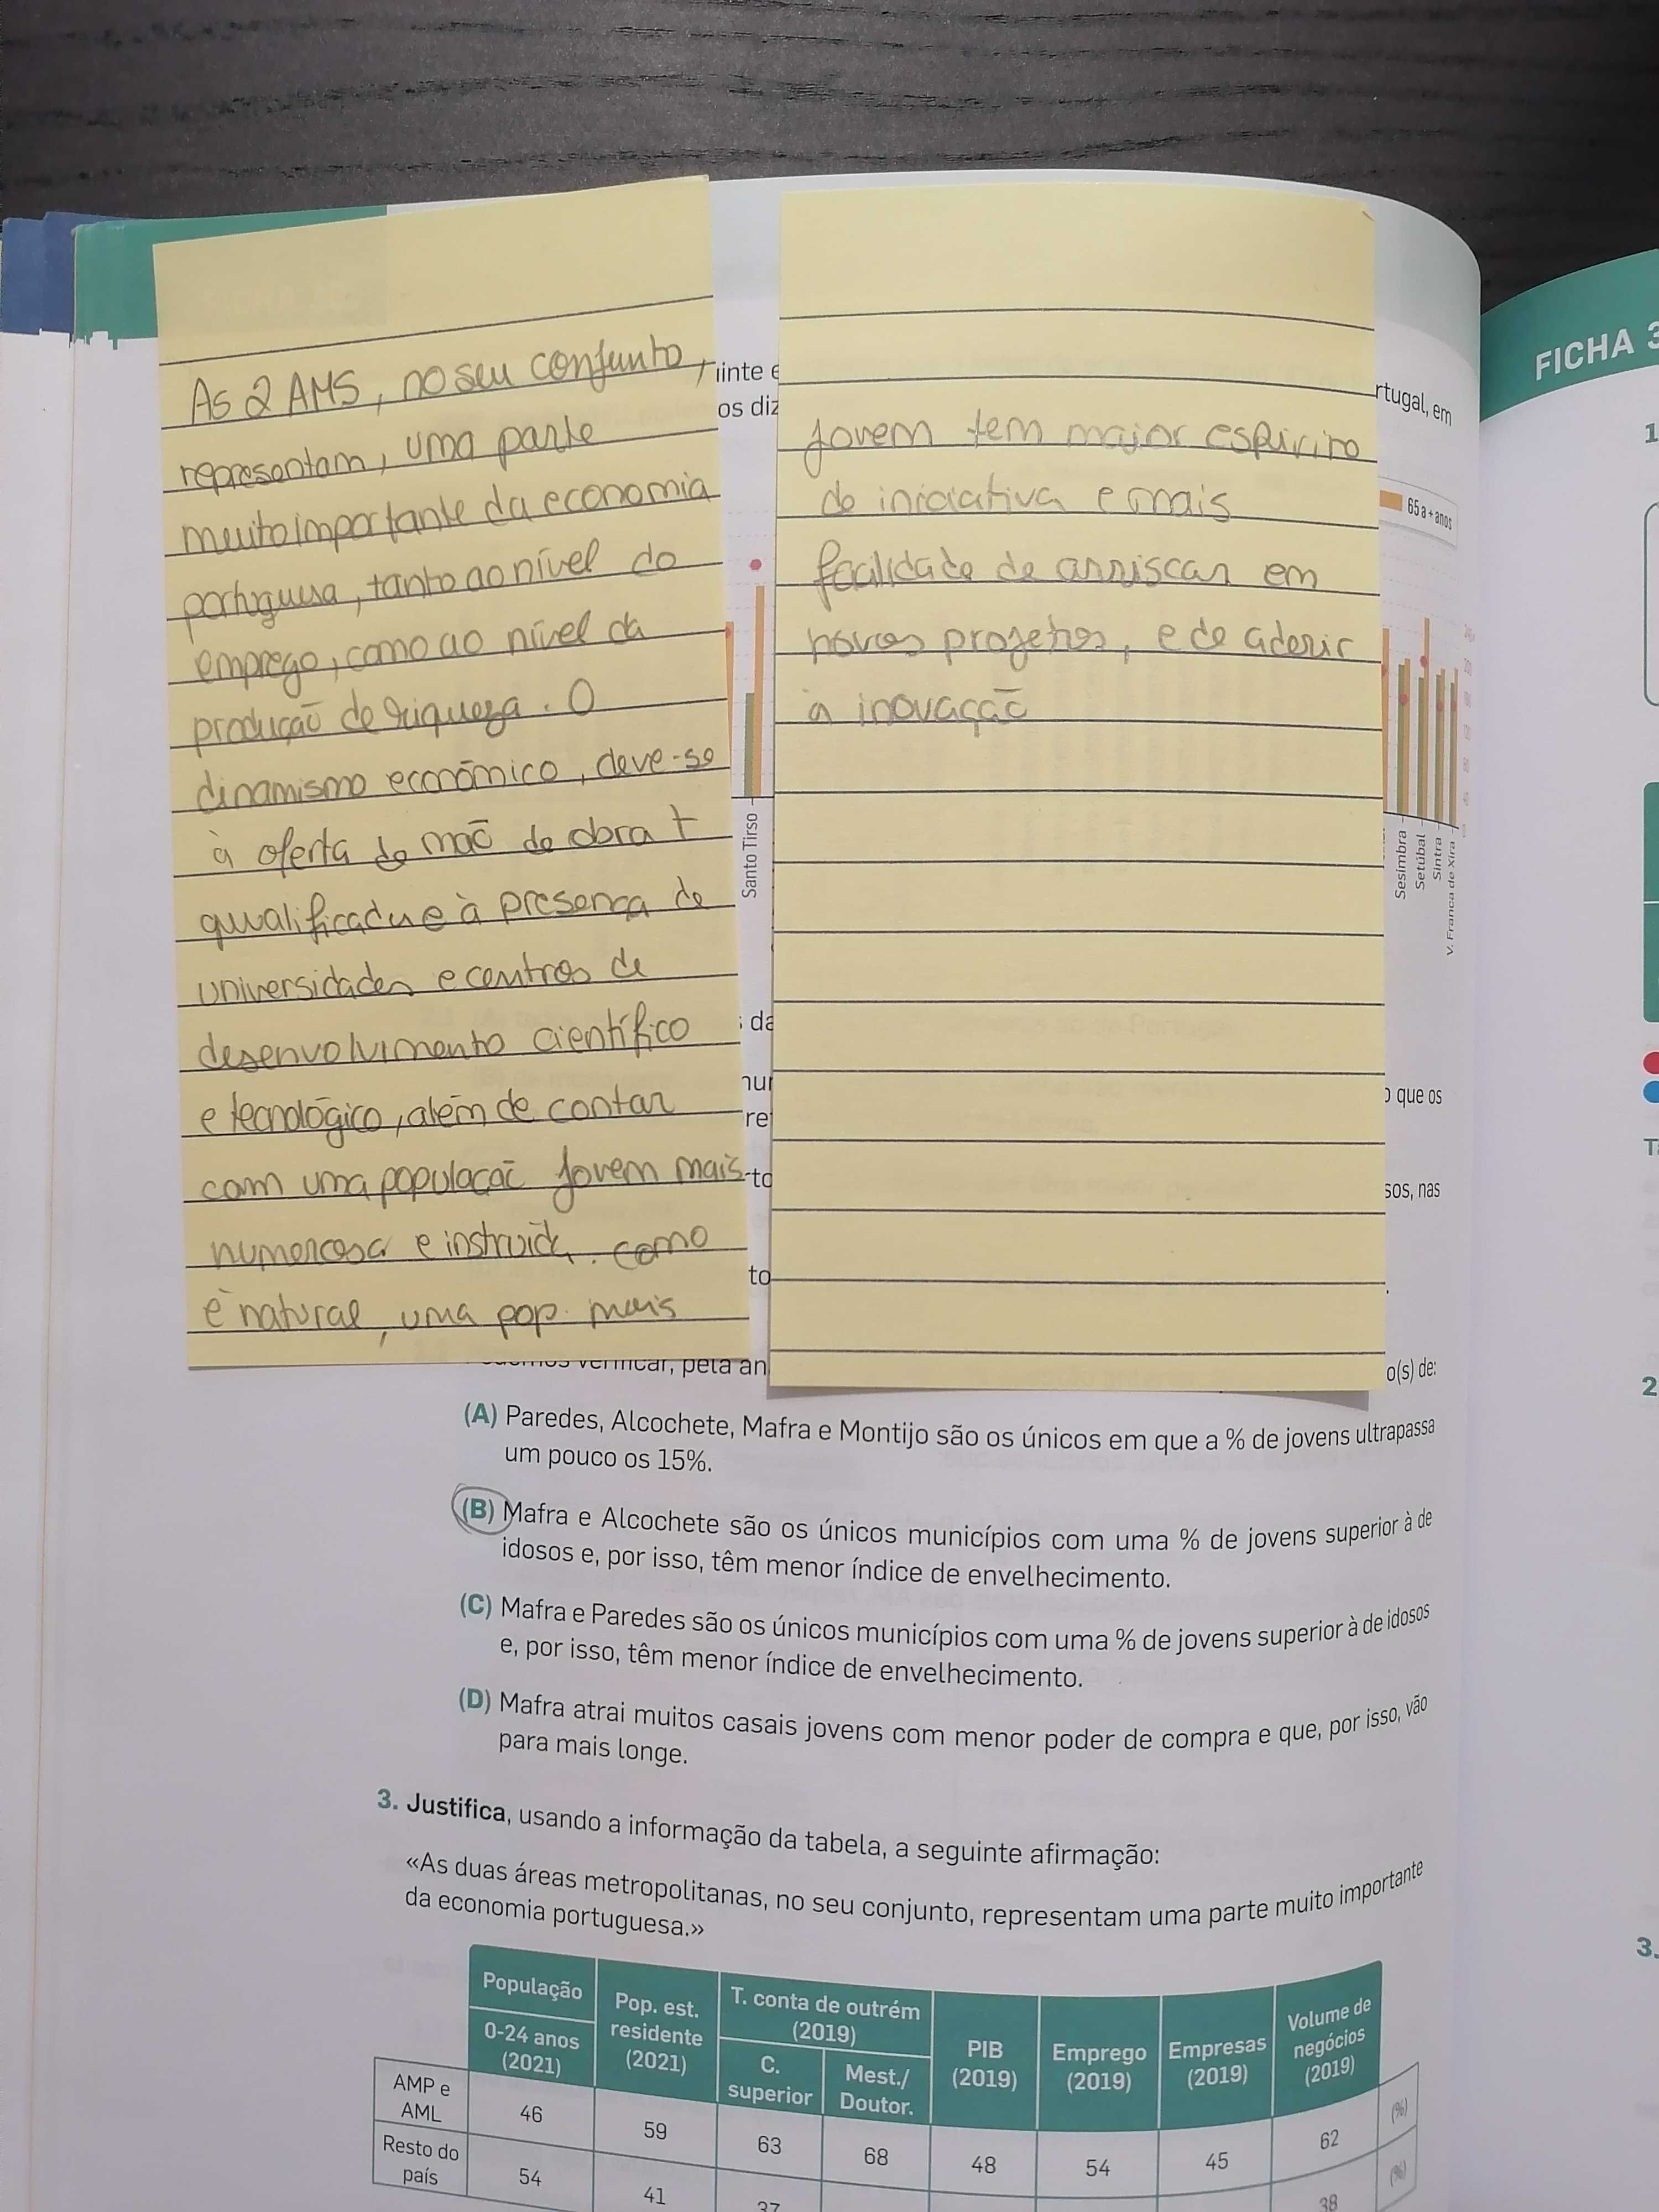 As 2 AMS, no seu conjunto,
representam, uma parte
muito importante da economia
portuguesa, tanto ao nível do
emprego, como ao nível da
produção de riqueza. O
dinamismo económico, deve-se
à oferta de mão de obra +
qualificada e à presença de
universidades e centros de
desenvolvimento científico
e tecnológico, além de contar
com uma população jovem mais
numerosa e instruída. como
é natural, uma pop. mais
jovem tem maior espirito
de iniciativa e mais
facilidade de arriscar em
novos projetos, e de aderir
à inovação
os diz
rtugal, em
65 a + anos
Santo Tirso
Sesimbra
Setúbal
Sintra
V. Franca de Xira
o que os
sos, nas
verificar, pela an
o(s) de:
(A) Paredes, Alcochete, Mafra e Montijo são os únicos em que a % de jovens ultrapassa
um pouco os 15%.
(B) Mafra e Alcochete são os únicos municípios com uma % de jovens superior à de
idosos e, por isso, têm menor índice de envelhecimento.
(C) Mafra e Paredes são os únicos municípios com uma % de jovens superior à de idosos
e, por isso, têm menor índice de envelhecimento.
(D) Mafra atrai muitos casais jovens com menor poder de compra e que, por isso, vão
para mais longe.
3. Justifica, usando a informação da tabela, a seguinte afirmação:
«As duas áreas metropolitanas, no seu conjunto, representam uma parte muito importante
da economia portuguesa.»
População
0-24 anos
(2021)
Pop. est.
residente
(2021)
T. conta de outrém
(2019)
C.
superior
Mest./
Doutor.
PIB
(2019)
Emprego
(2019)
Empresas
(2019)
Volume de
negócios
(2019)
AMP e
AML
46 59 63 68 48 54 45 62 (%)
Resto do
país
54 41 37 38 (%)
FICHA 3
1
2
3.